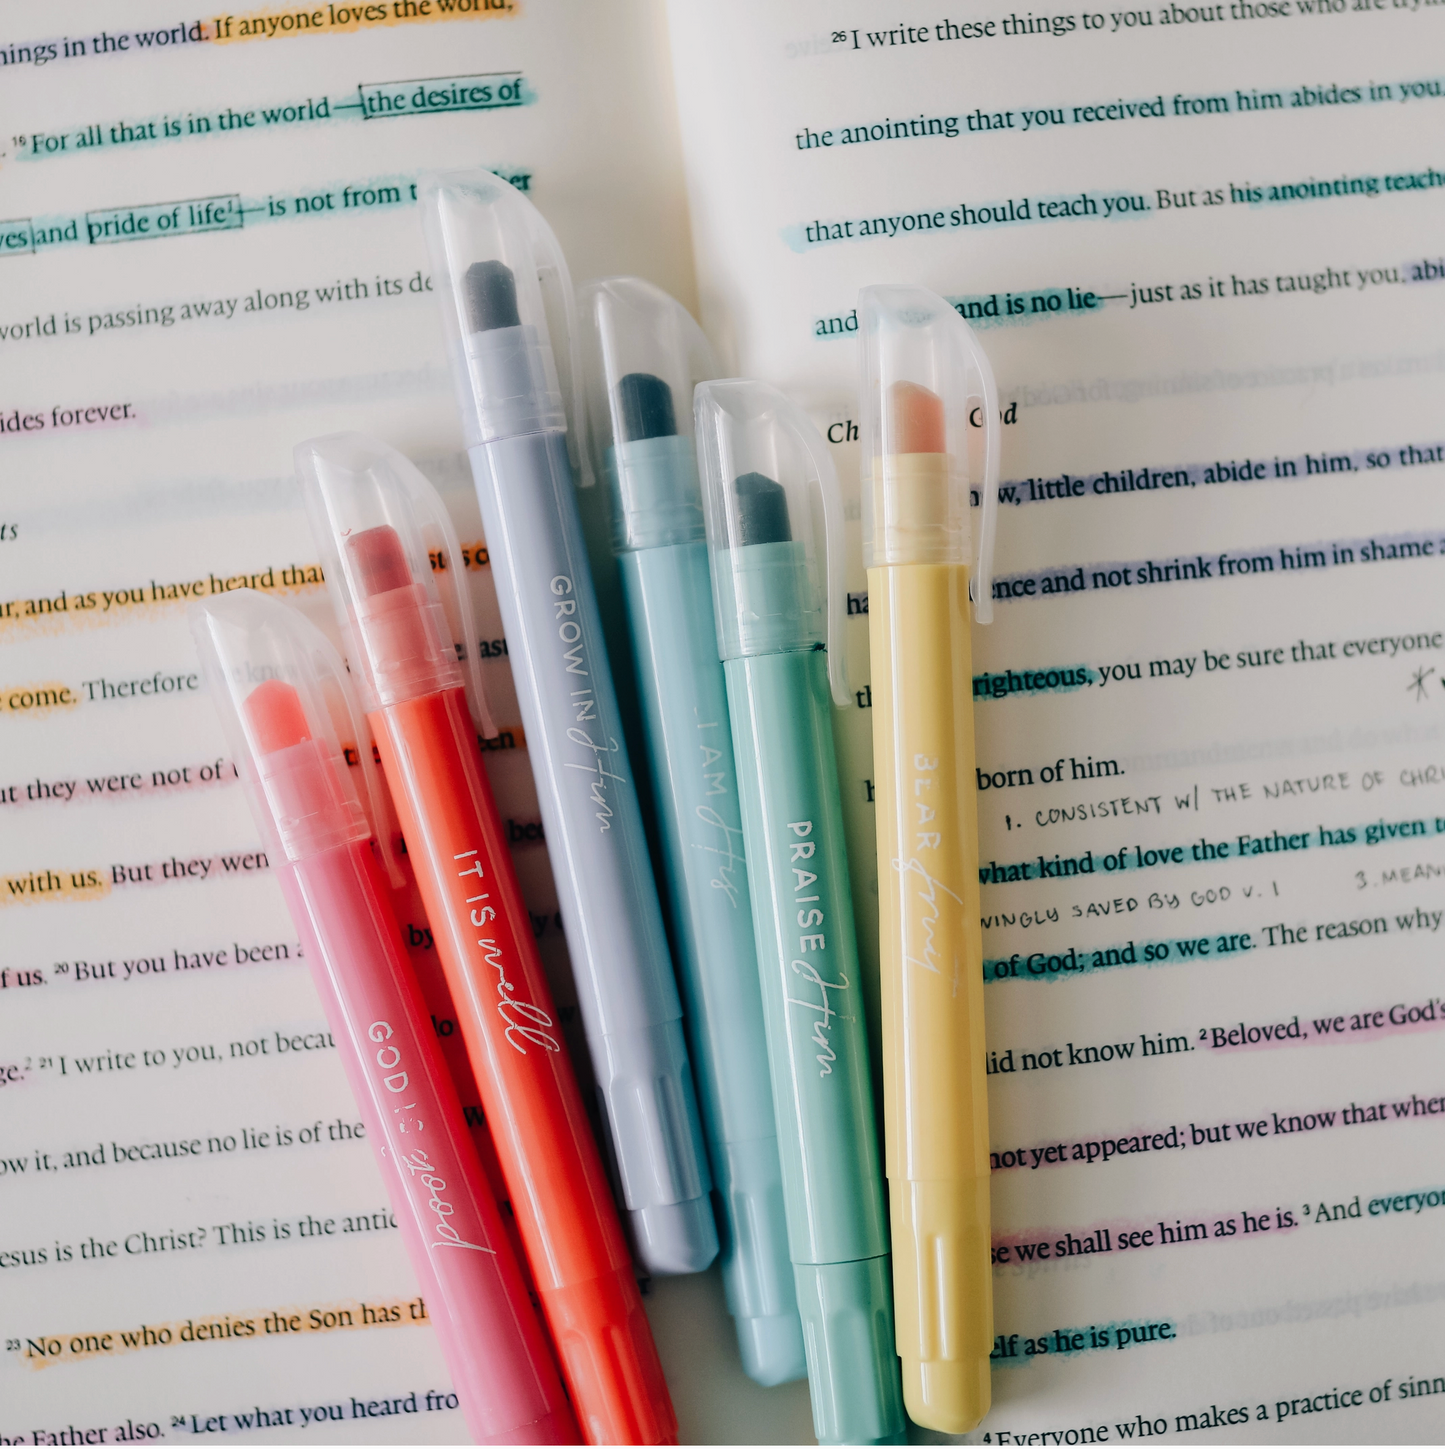 things in the world. If anyone loves the world,
. 16 For all that is in the world—the desires of
yes and pride of life1—is not from t er
world is passing away along with its de
ides forever.
ts
ur, and as you have heard that sts o
e come. Therefore
ut they were not of
with us. But they wen
f us. 20 But you have been a
ge.2 21 I write to you, not becau
ow it, and because no lie is of the
esus is the Christ? This is the antic
23 No one who denies the Son has th
he Father also. 24 Let what you heard fro
GOD IS good
IT IS well
GROW IN Him
I AM His
PRAISE Him
BEAR fruit
26 I write these things to you about those who are
the anointing that you received from him abides in you,
that anyone should teach you. But as his anointing teach
and and is no lie—just as it has taught you, abi
Ch God
now, little children, abide in him, so that
ha ence and not shrink from him in shame
th righteous, you may be sure that everyone
born of him.
1. CONSISTENT W/ THE NATURE OF CHRI
what kind of love the Father has given to
WINGLY SAVED BY GOD V. 1 3. MEAN
of God; and so we are. The reason why
did not know him. 2 Beloved, we are God's
not yet appeared; but we know that when
se we shall see him as he is. 3 And everyo
elf as he is pure.
4 Everyone who makes a practice of sinn